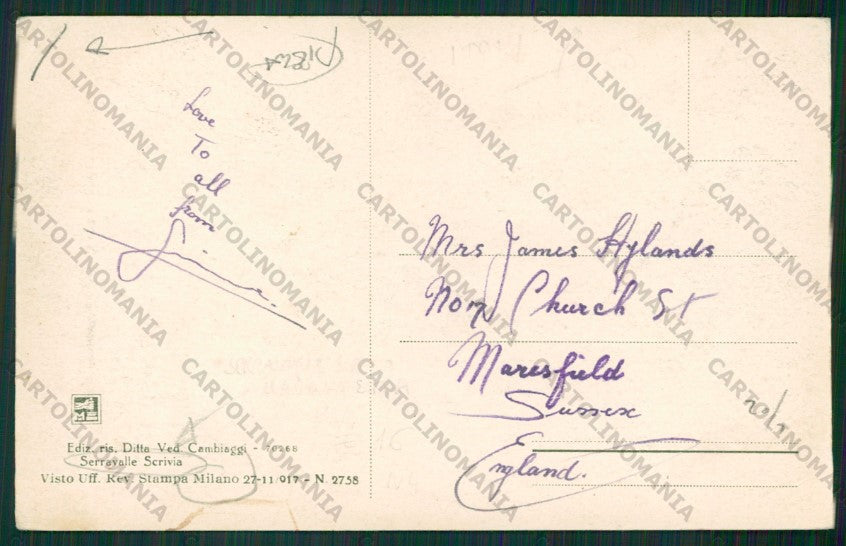 Love
To
all
from
Mrs James Hylands
Church St
Maresfield
Sussex
England.
Ediz. ris. Ditta Ved. Cambiaggi - 70268
Serravalle Scrivia
Visto Uff. Rev. Stampa Milano 27-11-917 - N. 2758
CARTOLINOMANIA